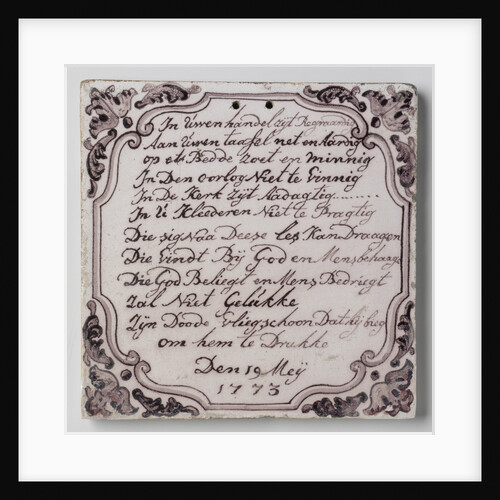 In Uwen handel zyt
Aan Uwen taafel net en Aardig
op et Bedde zoet en minnig
In Den oorlog Niet te Vinnig
In De Kerk zyt Aadagtig.........
In U Kliederen Niet te Pragtig
Die sig Naa Deeze les Kan Draagen
Die Vindt By God en Mens behaage
Die God Beliegt en Mens Bedriegt
Zal Niet Gelukke
Zyn Doode Vliegschoon Dat hy
om hem te Drukke
Den 19 Meÿ
1773